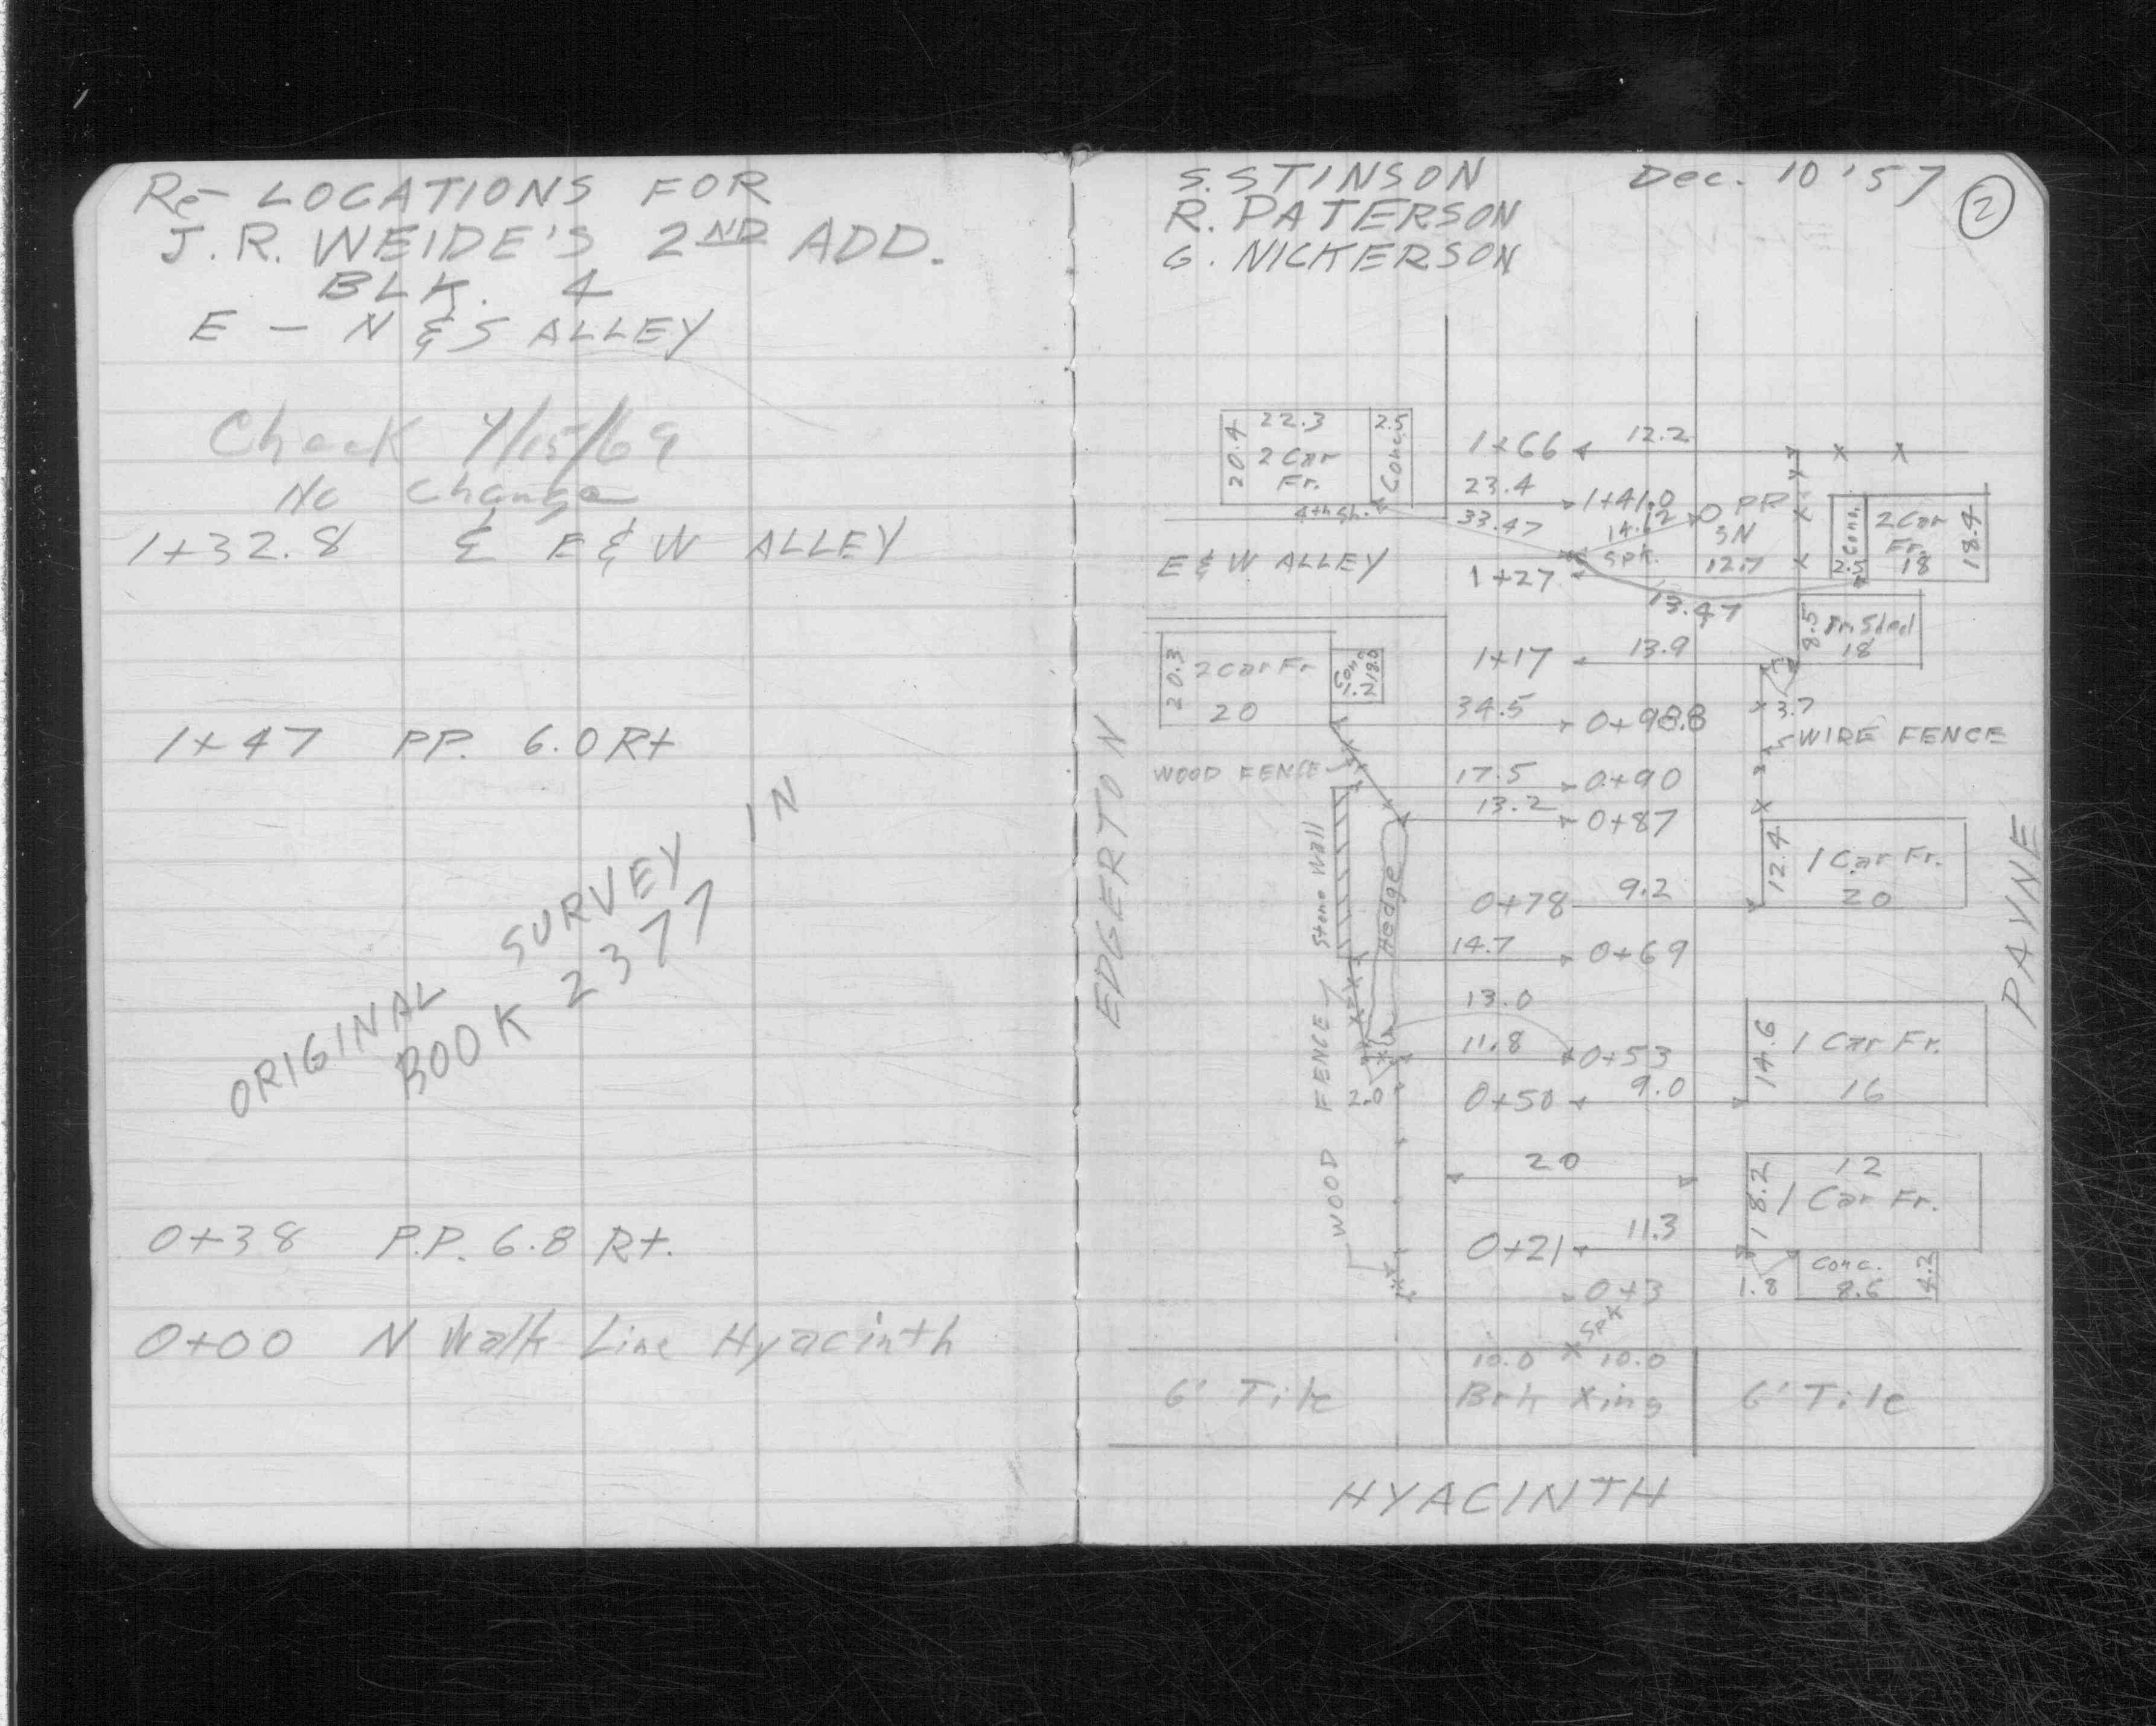 Re- LOCATIONS FOR
J. R. WEIDE'S 2ND ADD.
BLK. 4
E - N & S ALLEY
Check 4/15/69
No Change
1+32.8 ℄ E & W ALLEY
1+47 PP. 6.0 Rt
ORIGINAL SURVEY IN
BOOK 2377
0+38 P.P. 6.8 Rt.
0+00 N Walk Line Hyacinth
S. STINSON Dec. 10 '57 2
R. PATERSON
G. NICKERSON
20.4 22.3 2.5
2 Car Conc.
Fr.
1+66 12.2
23.4 1+41.0 PP
4th Sh. 33.47 14.62 SN
Spk. 12.7
2.5 Conc. 2 Car
Fr. 18.4
18
E & W ALLEY 1+27
13.47
8.5
18
20.3 2 Car Fr Conc
20 1.2 18.0
1+17 13.9
34.5 0+98.8 3.7
WIRE FENCE
WOOD FENCE 17.5 0+90
13.2 0+87
EDGERTON
Stone Wall
Hedge
12.4 1 Car Fr.
20
0+78 9.2
14.7 0+69
PAYNE
13.0
11.8 0+53
14.6 1 Car Fr.
16
2.0 0+50 9.0
WOOD FENCE
20
18.2 12
1 Car Fr.
0+21 11.3
0+3 1.8 Conc.
8.6 4.2
Spk
10.0 10.0
6' Tile Brk Xing 6' Tile
HYACINTH